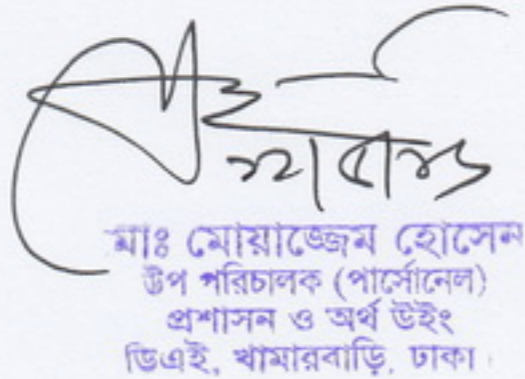 মাঃ মোয়াজ্জেম হোসেন
উপ পরিচালক (পার্সোনেল)
প্রশাসন ও অর্থ উইং
ডিএই, খামারবাড়ি, ঢাকা।